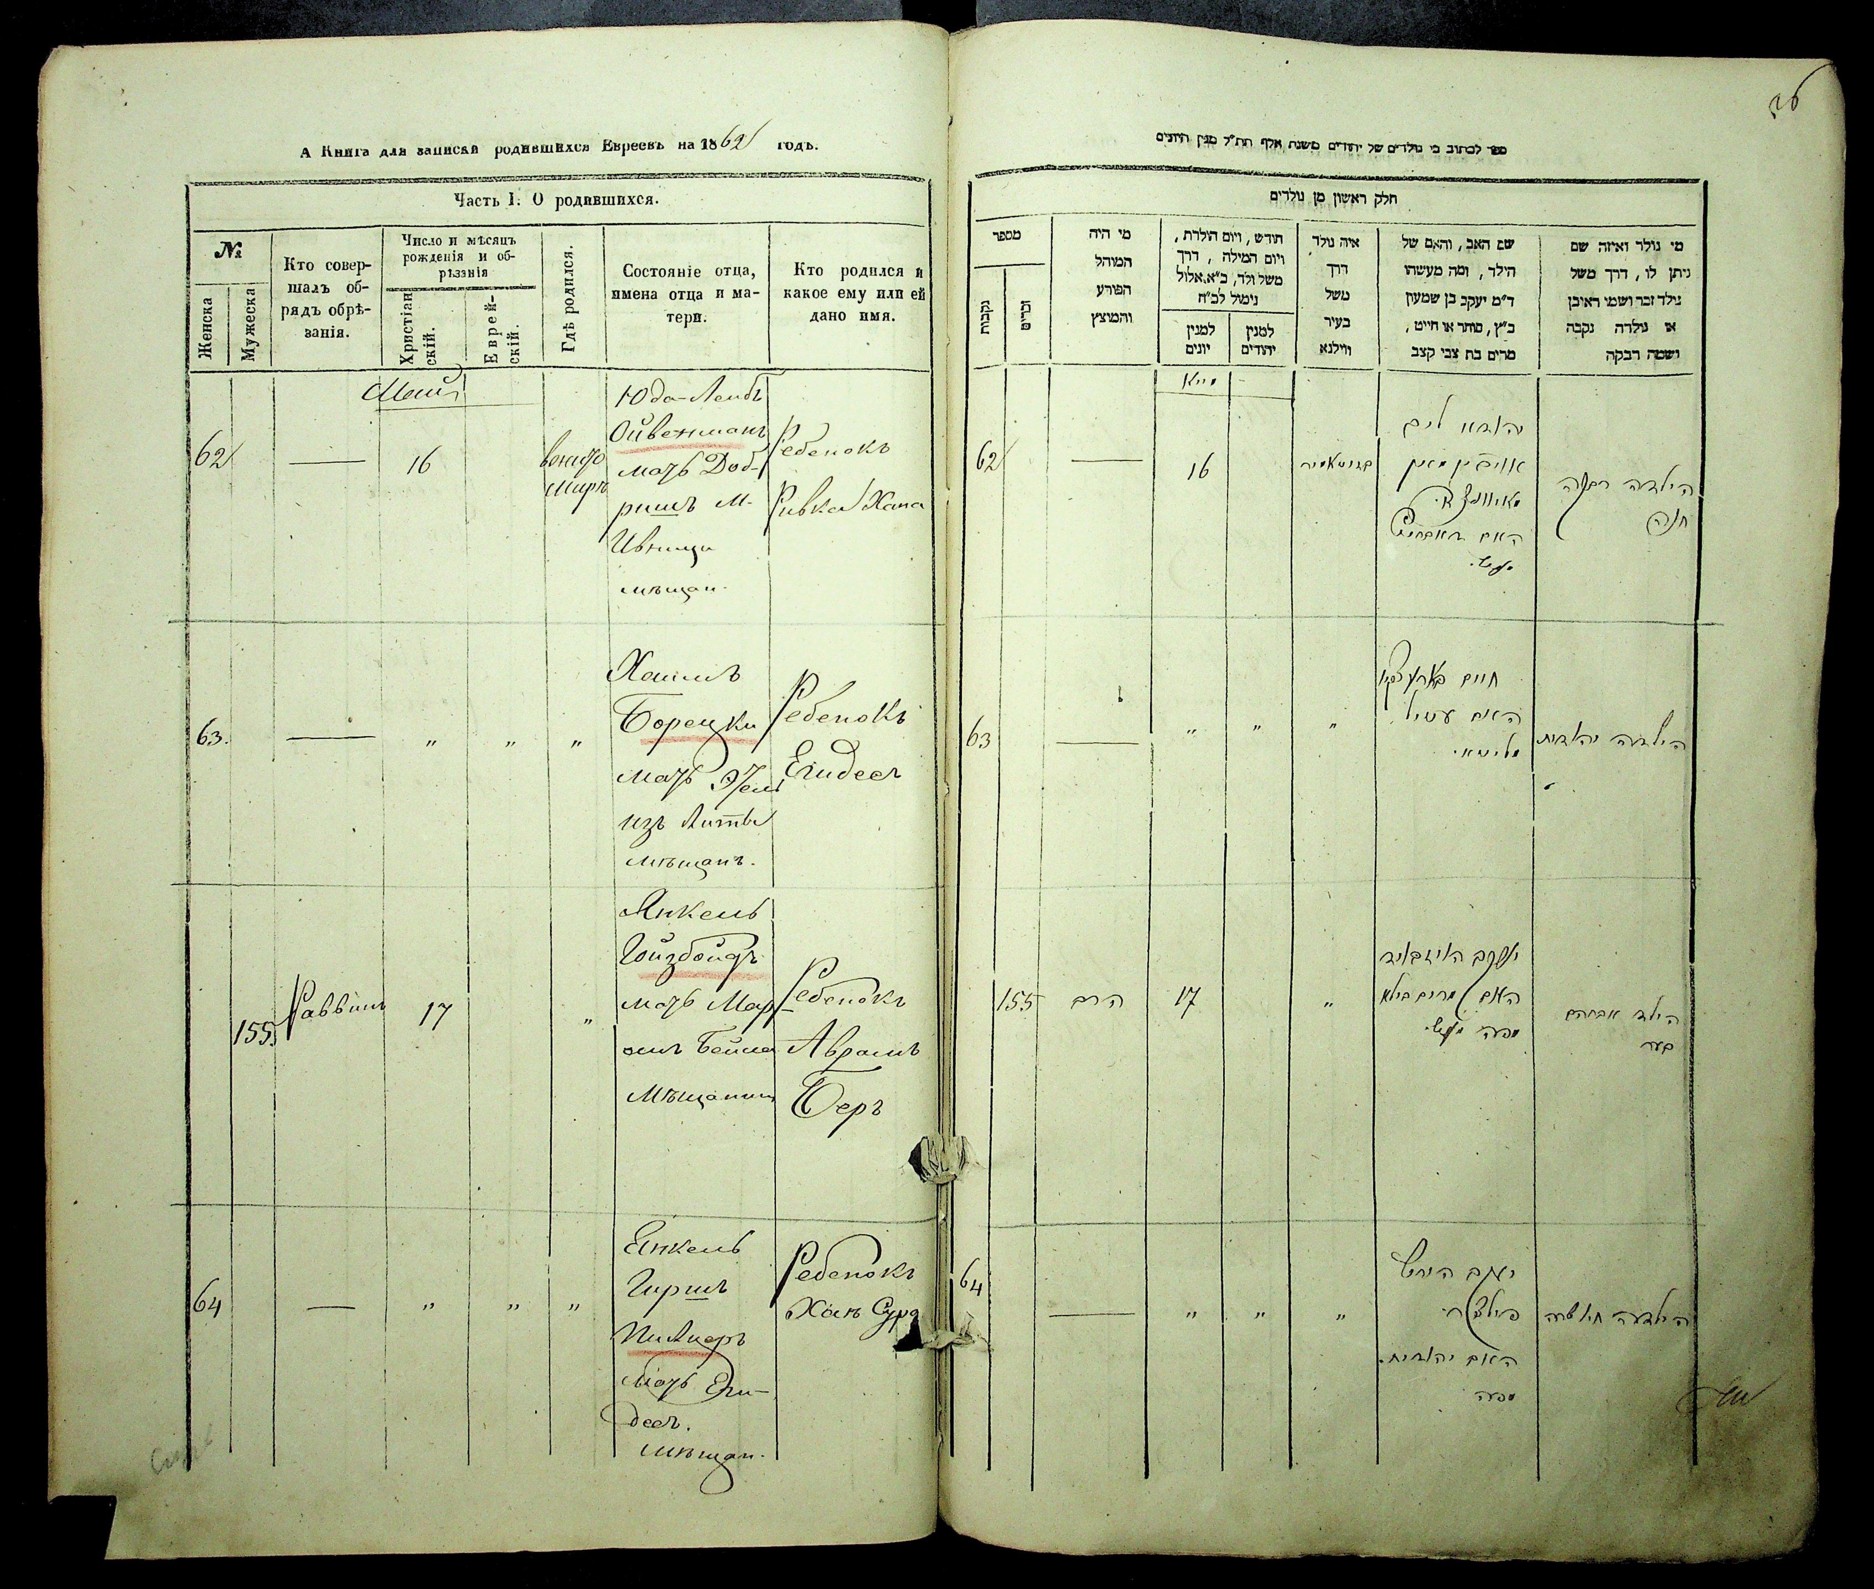 А Книга для записки родившихся Евреевъ на 1862 годъ.
Часть I. О родившихся.
№
Женска
Мужеска
Кто совер-
шалъ об-
рядъ обрѣ-
занія.
Число и мѣсяцъ
рожденія и об-
рѣзанія
Христіан
скій.
Еврей-
скій.
Гдѣ родился.
Состояніе отца,
имена отца и ма-
тери.
Кто родился и
какое ему или ей
дано имя.
Май
62
16
Юда-Лейбъ
Ойвенманъ
мать Доб-
ришъ
мѣщан.
Ребенокъ
Ривка Хана
63.
" " "
Хаимъ
Борецки
мать Этель
изъ Литвы
мѣщанъ.
Ребенокъ
Егидесъ
155
Раввинъ
17
"
Янкель
Гойзбойдъ
мать Мар-
ямъ Бейла
Мѣщанинъ
Ребенокъ
Аврамъ
Беръ
64
" " "
Енкель
Гиршъ
мать Еги-
десъ.
мѣщан.
Ребенокъ
Хая Сура
26
ספר לכתוב בי נולדים של יהודים משנת אלף תת״ל מנין היונים
חלק ראשון מן נולדים
מספר
נקבות
זכרים
מי היה
המוהל
הפורע
והמוצץ
חודש, ויום הולדת,
ויום המילה, דרך
משל ולד, כ״א אלול
נימול לכ״ח
למנין
יונים
למנין
יהודים
איה נולד
דרך
משל
בעיר
ווילנא
שם האב, והאם של
הילד, ומה מעשהו
ד״מ יעקב בן שמעון
כ״ץ, סוחר או חייט,
מרים בת צבי קצב
מי נולד ואיזה שם
ניתן לו, דרך משל
נולד זכר ושמו ראובן
או נולדה נקבה
ושמה רבקה
מייא
62
16
יהודא ליב
הילדה רבקה
חנה
63
" " "
חיים
האם
הילדה יהודית
155
הרב
17
"
יעקב הויזבויד
האם מרים ביילא
הילד אברהם
בער
64
" " "
יעקב הירש
האם יהודית.
הילדה חי׳ שרה